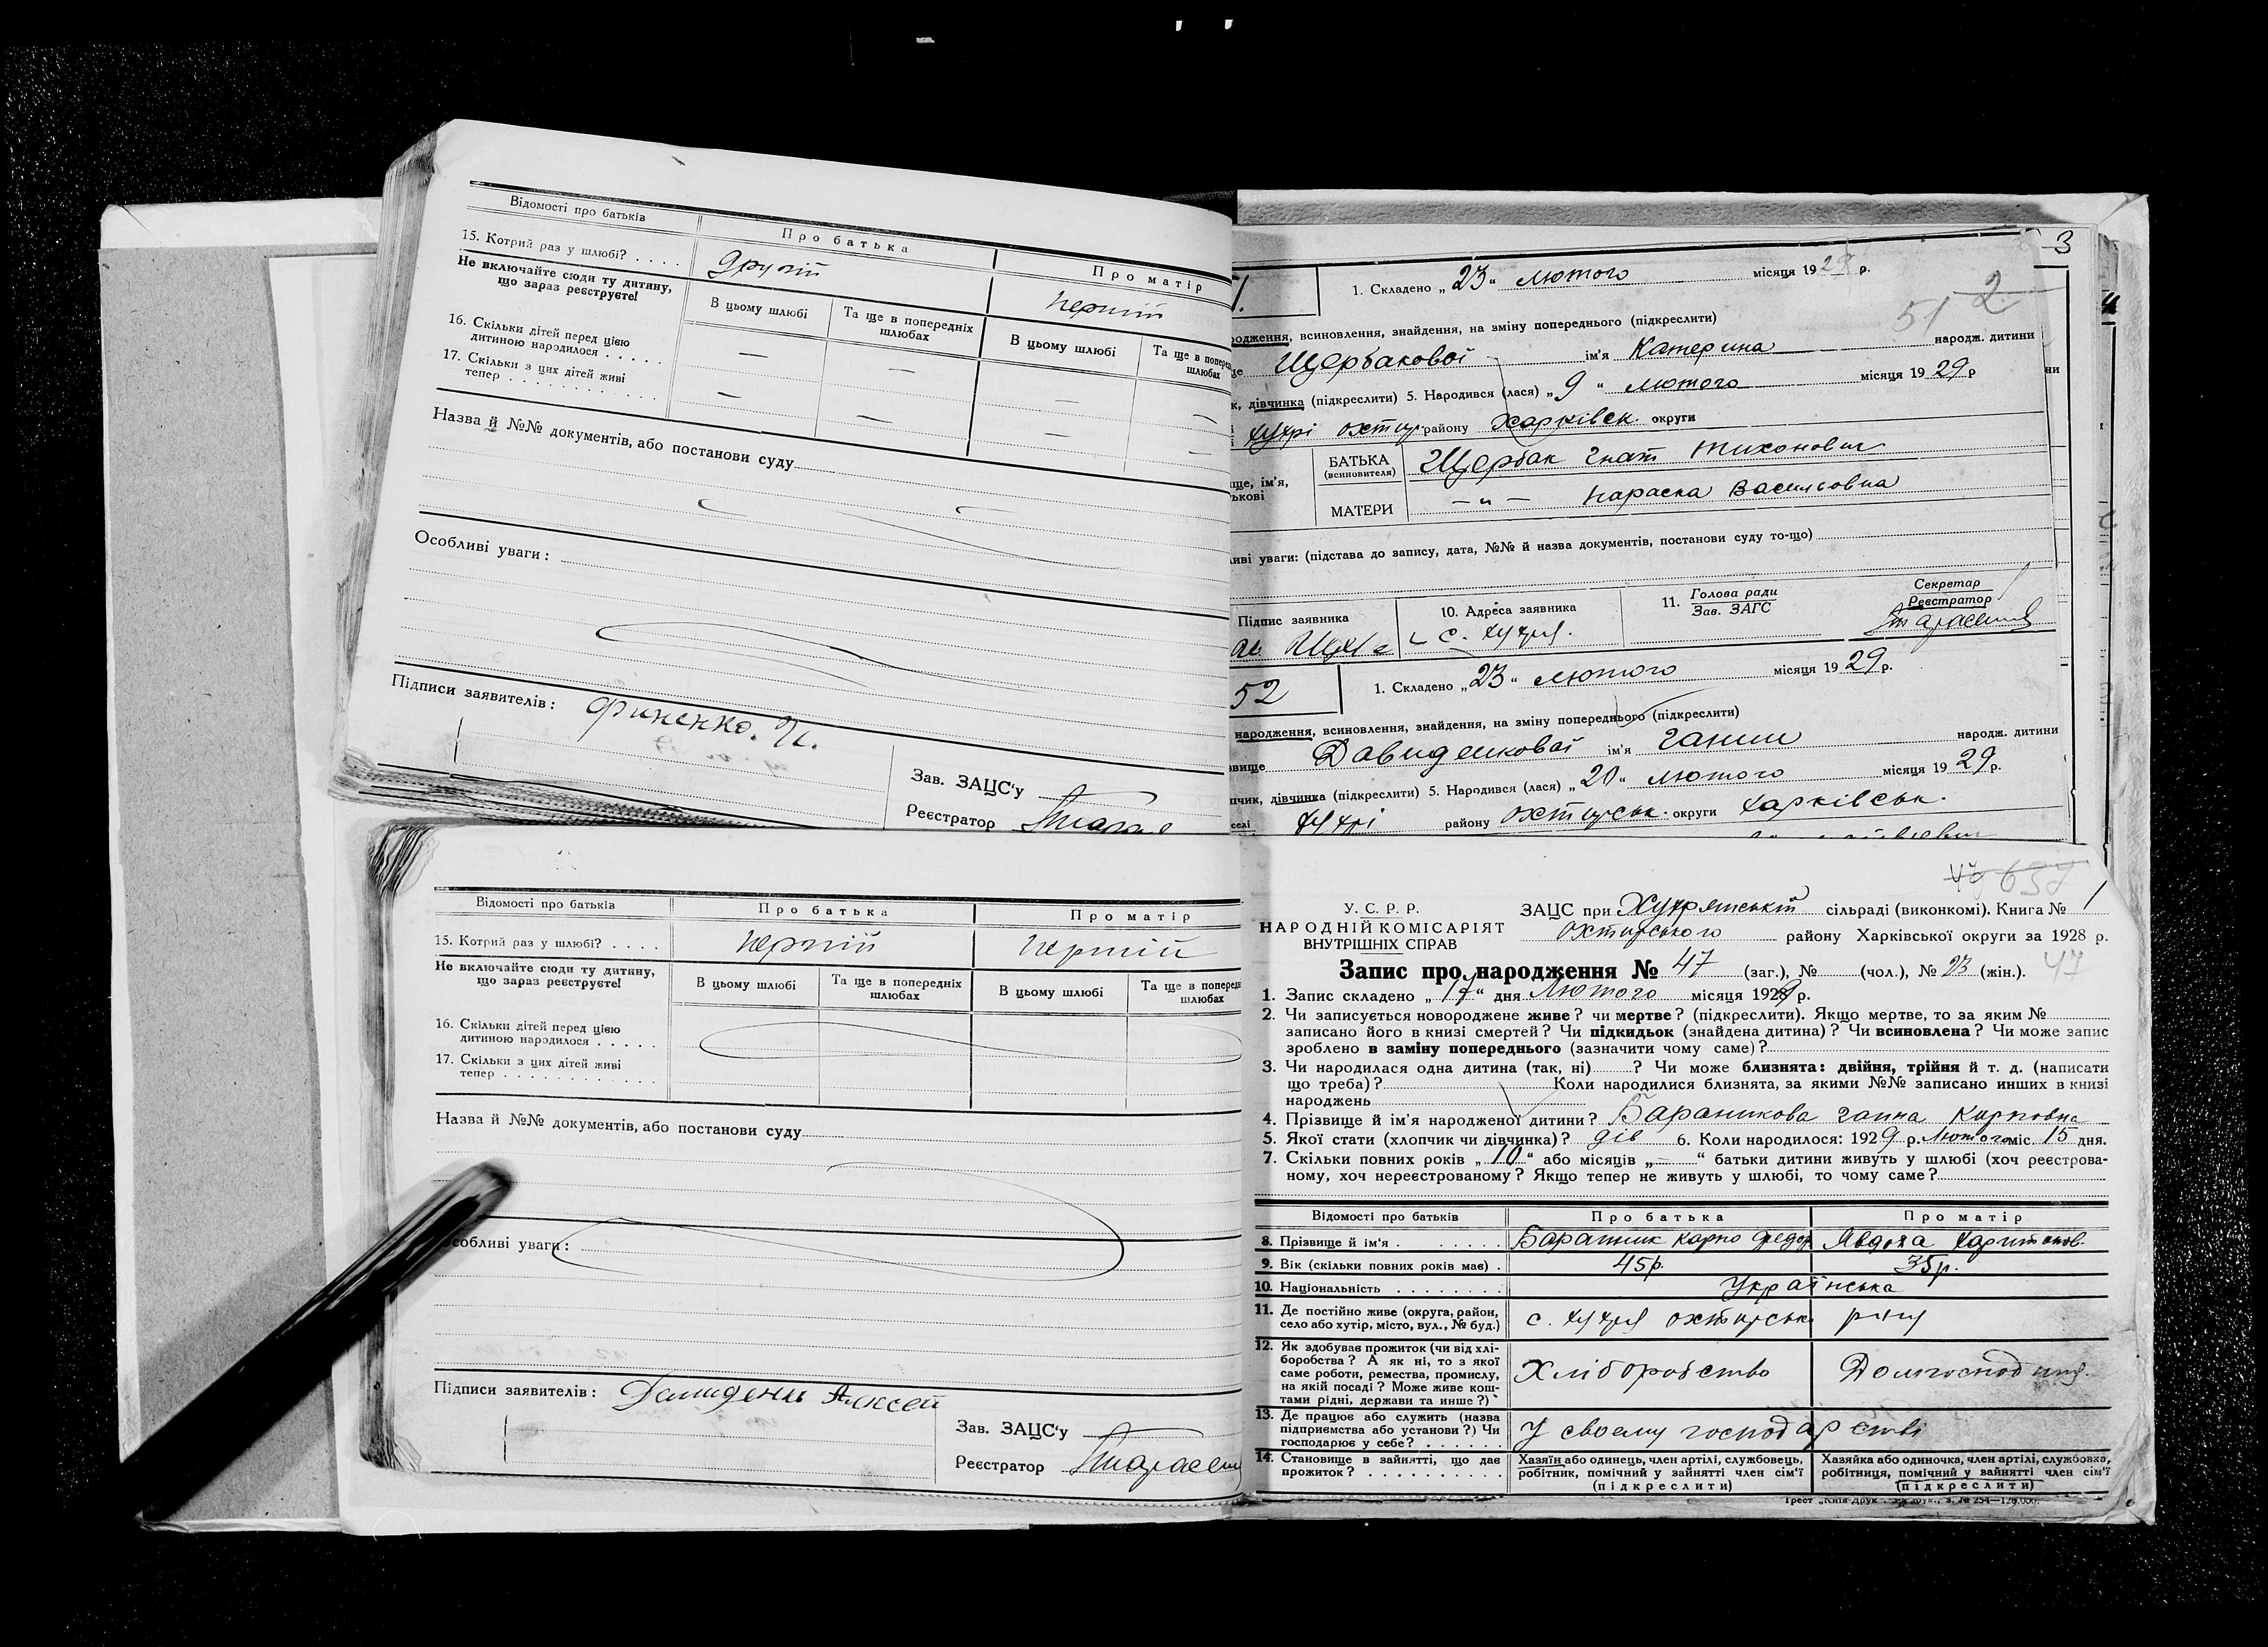 Відомості про батьків
Про батька
Про матір
15. Котрий раз у шлюбі? . . . .
другій
перший
Не включайте сюди ту дитину,
що зараз реєструєте!
В цьому шлюбі
Та ще в попередніх
шлюбах
В цьому шлюбі
Та ще в попере
шлюбах
16. Скільки дітей перед цією
дитиною народилося . . . . .
— —
17. Скільки з цих дітей живі
тепер . . . . . . . . . . . .
— — — —
Назва й №№ документів, або постанови суду
Особливі уваги:
Підписи заявителів: Финенко. И.
Зав. ЗАЦС'у
Реєстратор
3
1. Складено „23“ лютого місяця 1929 р.
2
51
родження, всиновлення, знайдення, на зміну попереднього (підкреслити)
Щербакової ім'я Катерина народж. дитини
к, дівчинка (підкреслити) 5. Народився (лася) „9“ лютого місяця 1929 р
хухрі охтир. району Харківськ. округи
ще, ім'я,
ькові
БАТЬКА
(всиновителя)
Щербак Гнат Тихонович
МАТЕРИ
—„— Параска Васильовна
иві уваги: (підстава до запису, дата, №№ й назва документів, постанови суду то-що)
Підпис заявника
10. Адреса заявника
с. хухря.
11. Голова ради
Зав. ЗАГС
Секретар
Реєстратор
52
1. Складено „23“ лютого місяця 1929 р.
народження, всиновлення, знайдення, на зміну попереднього (підкреслити)
звище Давиденкової ім'я Ганни народж. дитини
пчик, дівчинка (підкреслити) 5. Народився (лася) „20“ лютого місяця 1929 р.
селі хухрі району охтирськ. округи харківськ.
Відомості про батьків
Про батька
Про матір
15. Котрий раз у шлюбі? . . . .
перший
перший
Не включайте сюди ту дитину,
що зараз реєструєте!
В цьому шлюбі
Та ще в попередніх
шлюбах
В цьому шлюбі
Та ще в поперед
шлюбах
16. Скільки дітей перед цією
дитиною народилося . . . . .
17. Скільки з цих дітей живі
тепер . . . . . . . . . . . .
Назва й №№ документів, або постанови суду
Особливі уваги:
Підписи заявителів:
Алексей
Зав. ЗАЦС'у
Реєстратор
1
У. С. Р. Р.
НАРОДНІЙ КОМІСАРІЯТ
ВНУТРІШНІХ СПРАВ
ЗАЦС при Хухрянській сільраді (виконкомі). Книга №
охтирського району Харківської округи за 1928 р.
Запис про народження № 47 (заг.), № (чол.), № 23 (жін.).
47
1. Запис складено „17“ дня Лютого місяця 1929 р.
2. Чи записується новороджене живе? чи мертве? (підкреслити). Якщо мертве, то за яким №
записано його в книзі смертей? Чи підкидьок (знайдена дитина)? Чи всиновлена? Чи може запис
зроблено в заміну попереднього (зазначити чому саме)?
3. Чи народилася одна дитина (так, ні)? Чи може близнята: двійня, трійня й т. д. (написати
що треба)? Коли народилися близнята, за якими №№ записано инших в книзі
народжень
4. Прізвище й ім'я народженої дитини? Бараникова Ганна Карповна
5. Якої стати (хлопчик чи дівчинка)? дів 6. Коли народилося: 1929 р. Лютого міс. 15 дня.
7. Скільки повних років „10“ або місяців „—“ батьки дитини живуть у шлюбі (хоч реєстрова-
ному, хоч нереєстрованому? Якщо тепер не живуть у шлюбі, то чому саме?
Відомості про батьків
Про батька
Про матір
8. Прізвище й ім'я . . . . . .
Бараник Карпо Федор
Явдоха Харитонов.
9. Вік (скільки повних років має) .
45р.
35р.
10. Національність . . . . . . . .
Українська
11. Де постійно живе (округа, район,
село або хутір, місто, вул., № буд.)
с. хухря охтирськ р-ну
12. Як здобуває прожиток (чи від хлі-
боробства? А як ні, то з якої
саме роботи, ремества, промислу,
на якій посаді? Може живе кош-
тами рідні, держави та инше?)
Хліборобство
13. Де працює або служить (назва
підприємства або установи?) Чи
господарює у себе? . . . . . .
У своему господарстві
14. Становище в зайнятті, що дає
прожиток? . . . . . . . . . .
Хазяїн або одинець, член артілі, службовець,
робітник, помічний у зайнятті член сім'ї
(підкреслити)
Хазяйка або одиночка, член артілі, службовка,
робітниця, помічний у зайнятті член сім'ї
(підкреслити)